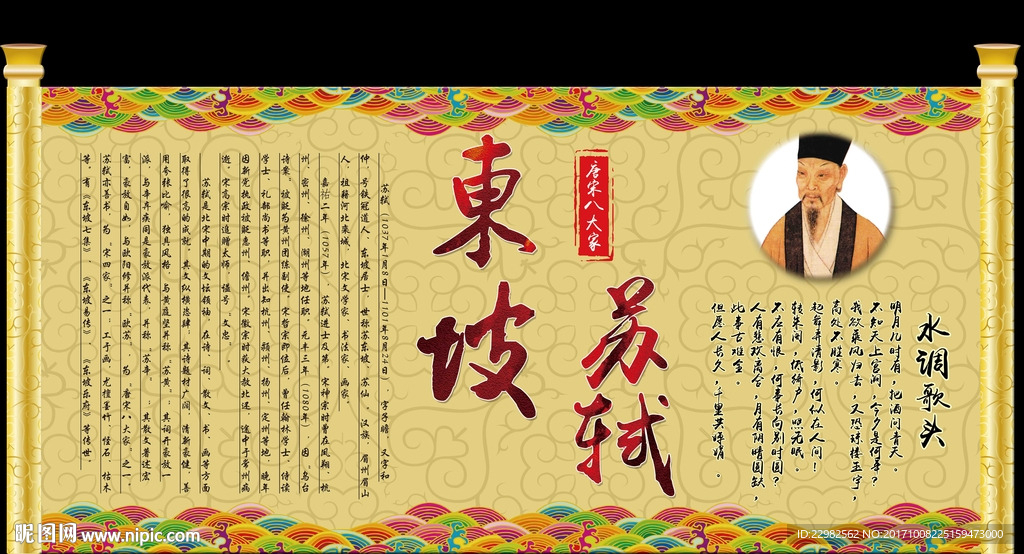 水调歌头
明月几时有，把酒问青天。
不知天上宫阙，今夕是何年？
我欲乘风归去，又恐琼楼玉宇，
高处不胜寒。
起舞弄清影，何似在人间！
转朱阁，低绮户，照无眠。
不应有恨，何事长向别时圆？
人有悲欢离合，月有阴晴圆缺，
此事古难全。
但愿人长久，千里共婵娟。
唐宋八大家
苏轼
東坡
苏轼（1037年1月8日—1101年8月24日），字子瞻，又字和
仲，号铁冠道人、东坡居士，世称苏东坡、苏仙。汉族，眉州眉山
人，祖籍河北栾城，北宋文学家、书法家、画家。
嘉祐二年（1057年），苏轼进士及第。宋神宗时曾在凤翔、杭
州、密州、徐州、湖州等地任职。元丰三年（1080年），因“乌台
诗案”被贬为黄州团练副使。宋哲宗即位后，曾任翰林学士、侍读
学士、礼部尚书等职，并出知杭州、颍州、扬州、定州等地，晚年
因新党执政被贬惠州、儋州。宋徽宗时获大赦北还，途中于常州病
逝。宋高宗时追赠太师，谥号“文忠”。
苏轼是北宋中期的文坛领袖，在诗、词、散文、书、画等方面
取得了很高的成就。其文纵横恣肆；其诗题材广阔，清新豪健，善
用夸张比喻，独具风格，与黄庭坚并称“苏黄”；其词开豪放一
派，与辛弃疾同是豪放派代表，并称“苏辛”；其散文著述宏
富，豪放自如，与欧阳修并称“欧苏”，为“唐宋八大家”之一。
苏轼亦善书，为“宋四家”之一；工于画，尤擅墨竹、怪石、枯木
等。有《东坡七集》、《东坡易传》、《东坡乐府》等传世。
昵图网 www.nipic.com
ID:22982562 NO:20171008225159473000